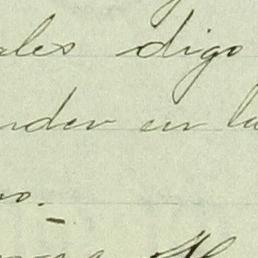 ales digo
nder en la
no.